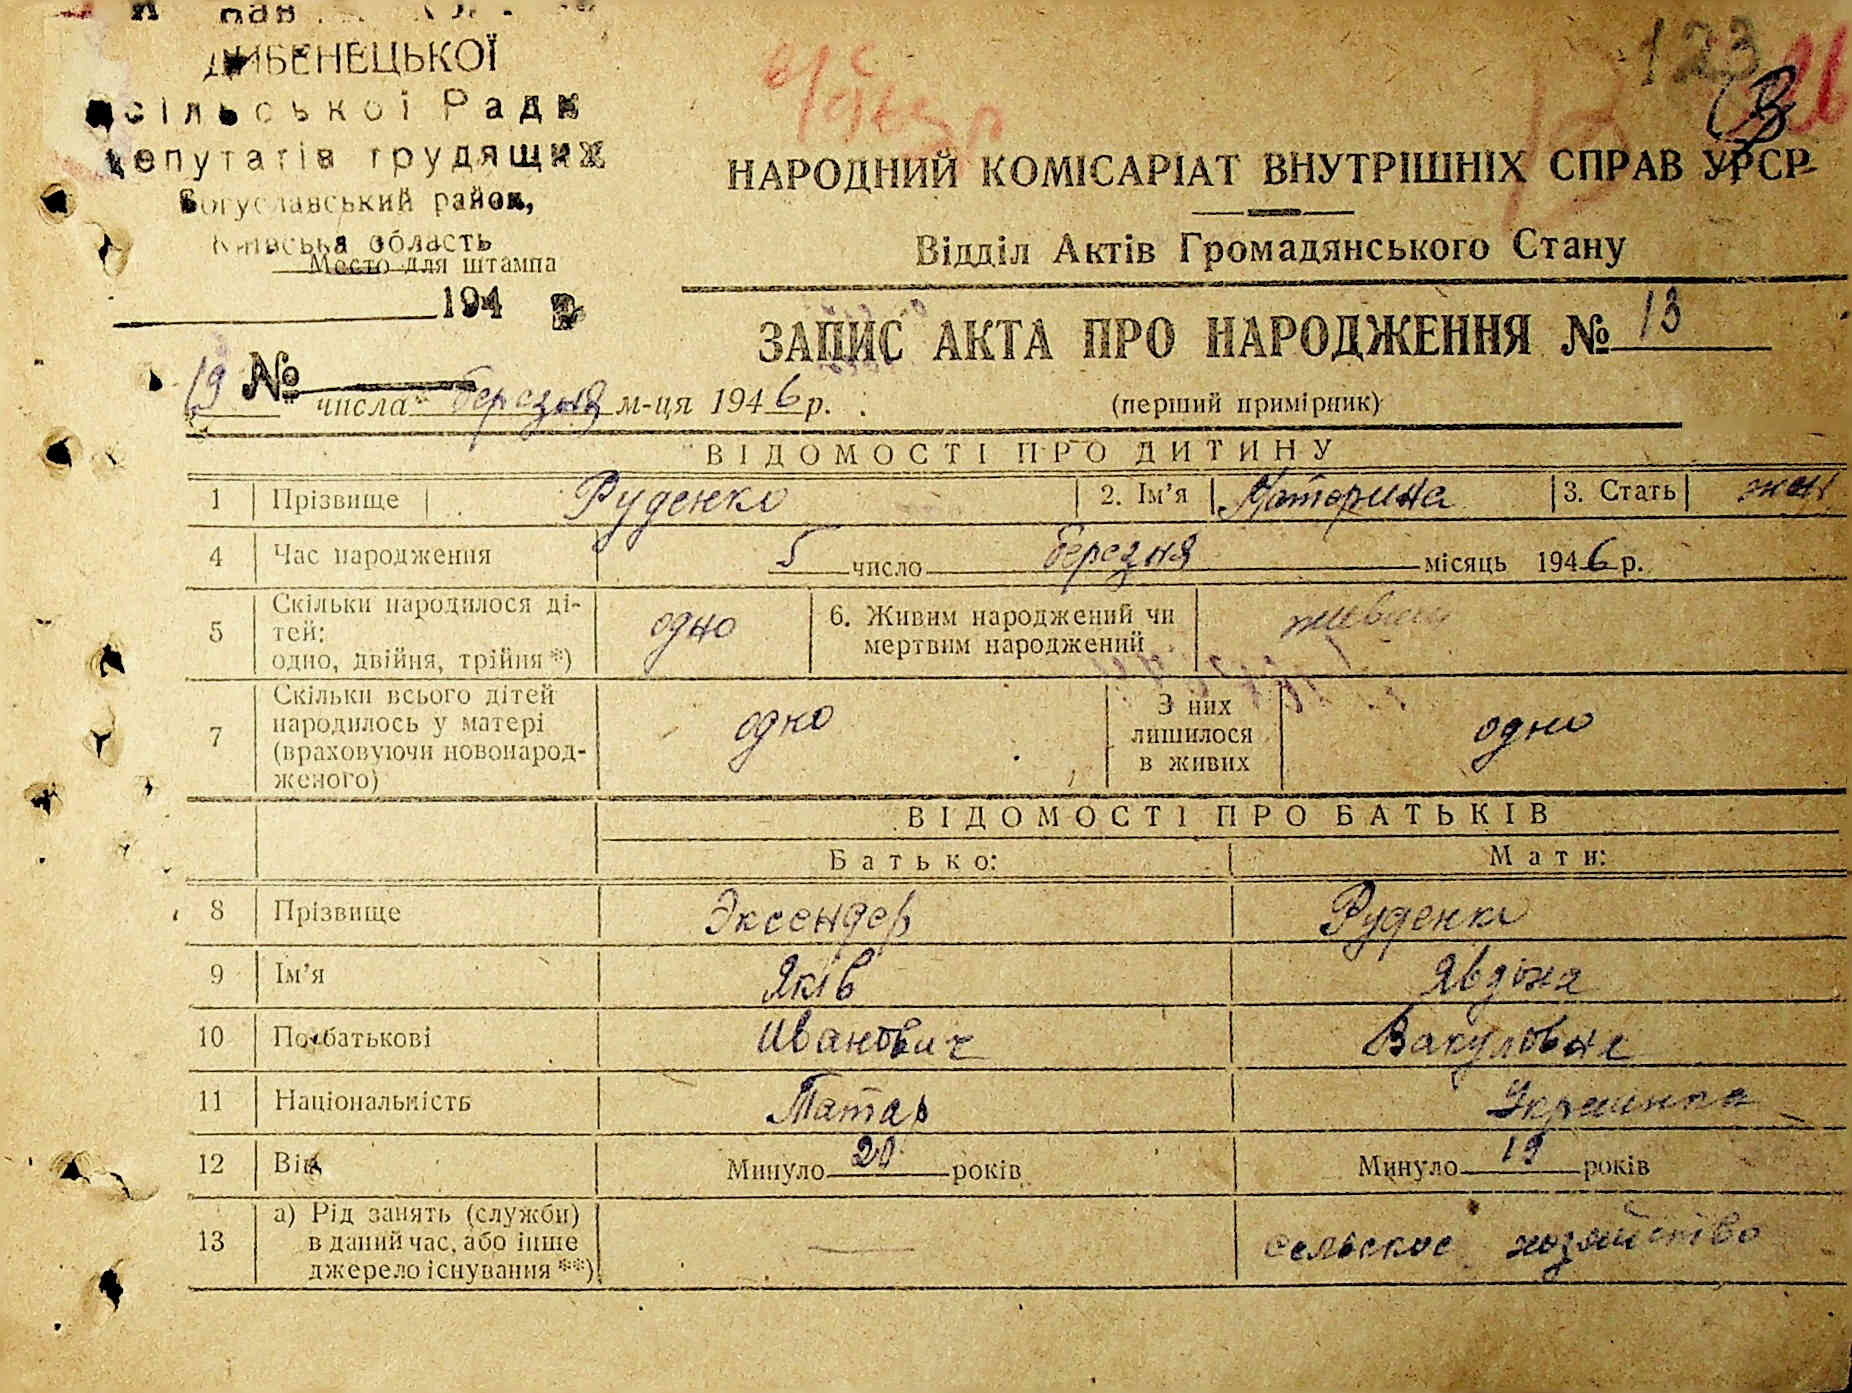 ДИБЕНЕЦЬКОЇ
сільської Ради
депутатів трудящих
Богуславський район,
Київська область
Место для штампа
194
№
123
НАРОДНИЙ КОМІСАРІАТ ВНУТРІШНІХ СПРАВ УРСР
Відділ Актів Громадянського Стану
ЗАПИС АКТА ПРО НАРОДЖЕННЯ № 13
19 числа березня м-ця 1946 р.
(перший примірник)
ВІДОМОСТІ ПРО ДИТИНУ
1 Прізвище Руденко 2. Ім'я Катерина 3. Стать жен
4 Час народження 5 число березня місяць 1946 р.
5 Скільки народилося ді-
тей:
одно, двійня, трійня *) одно 6. Живим народжений чи
мертвим народжений живим
7 Скільки всього дітей
народилось у матері
(враховуючи новонарод-
женого) одно З них
лишилося
в живих одно
ВІДОМОСТІ ПРО БАТЬКІВ
Батько: Мати:
8 Прізвище Эксендер Руденко
9 Ім'я Яків Явдоха
10 По батькові Иванович Вакуловна
11 Національність Татар Украинка
12 Вік Минуло 20 років Минуло 19 років
13 а) Рід занять (служби)
в даний час, або інше
джерело існування **) — сельское хозяйство